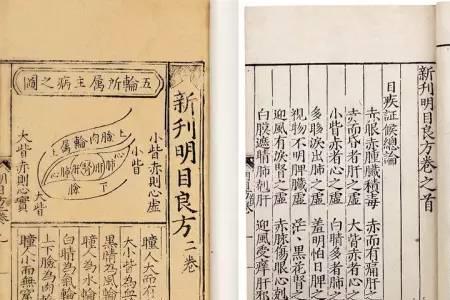 五輪所属主病之圖
新刊明目良方二卷
小眥赤則心虛
小眥
大眥
大眥赤則心實
瞳人大而有
大小眥為
黑睛為風輪
瞳人為水輪
白睛為氣輪
上下臉為肉
瞳小而無
新刊明目良方卷之首
目疾証候總論
赤眼赤腫臟積毒 赤而有痛肝
赤而昏者肝之虛 大眥赤者心之
小眥赤者心之虛 白睛多者肺之
多眵淚出肺之虛 羞明怕日脾
視物不明脾臟虛 茫茫黑花腎之
迎風有淚腎之虛 赤脉傷眼心剋
白膜遮睛肺剋肝 迎風受癢肝邪